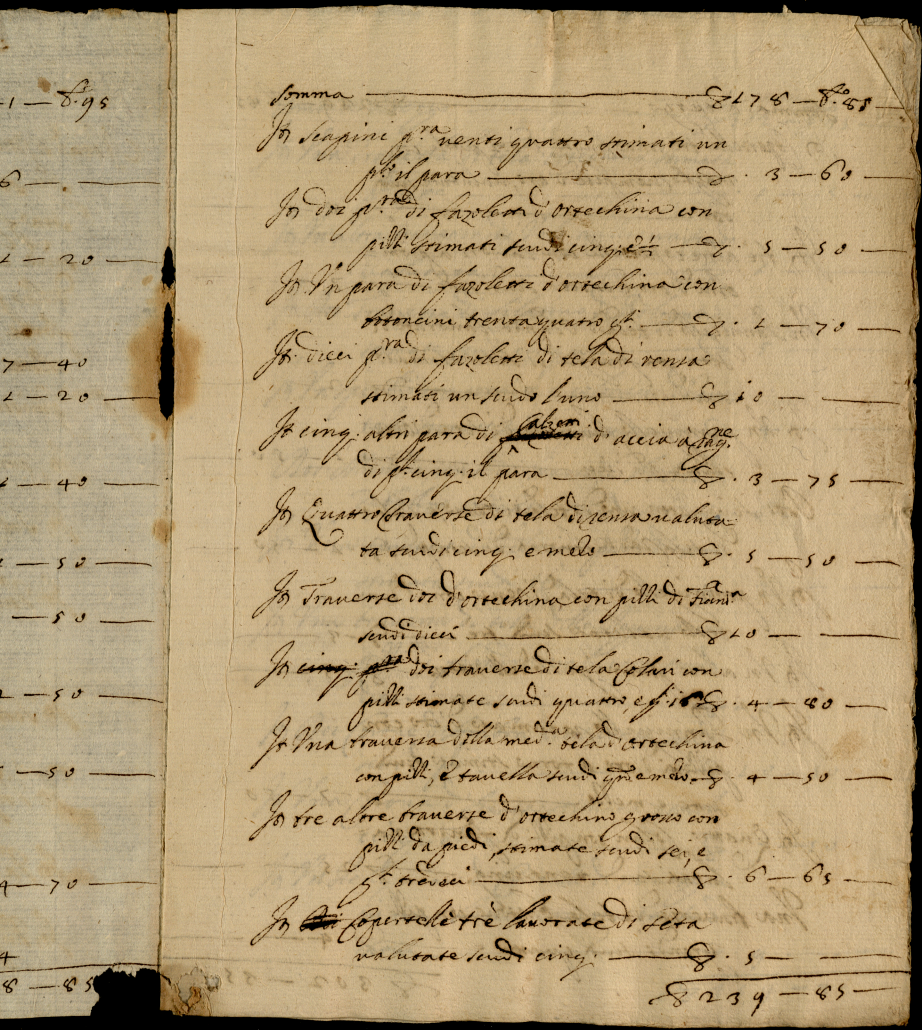 1 — 95
6 —
1 — 20
7 — 40
1 — 20
— 40
— 50
— 50
— 50
— 50
4 — 70
4
8 — 85
Somma — 178 — 85
It scapini p.ra venti quattro stimati un
il para — 3 — 60
It doi p.ra di fazoletti d'ortechina con
pilli stimati scudi cinq. e ½ — 5 — 50
It Un para di fazoletti d'ortechina con
botoncini trenta quatro — 1 — 70
It dieci p.ra di fazoletti di tela di rensa
stimati un scudo l'uno — 10 —
It cinq. altri para di calzoni d'accia
di cinq. il para — 3 — 75
It Quattro traverse di tela di rensa valuta
ta scudi cinq. e mezo — 5 — 50
It Traverse doi d'ortechina con pilli di Fiand.a
scudi dieci — 10 —
It cinq. p.ra doi traverse di tela con
pilli stimate scudi quattro, e — 4 — 80
It Una traversa della med.a tela d'ortechina
con pilli, e tavella scudi e mezo — 4 — 50
It tre altre traverse d'ortechino grosso con
pilli da piedi, stimate scudi sei, e
tredeci — 6 — 65
It Copertelle trè lavorate di seta
valutate scudi cinq. — 5 —
239 — 85